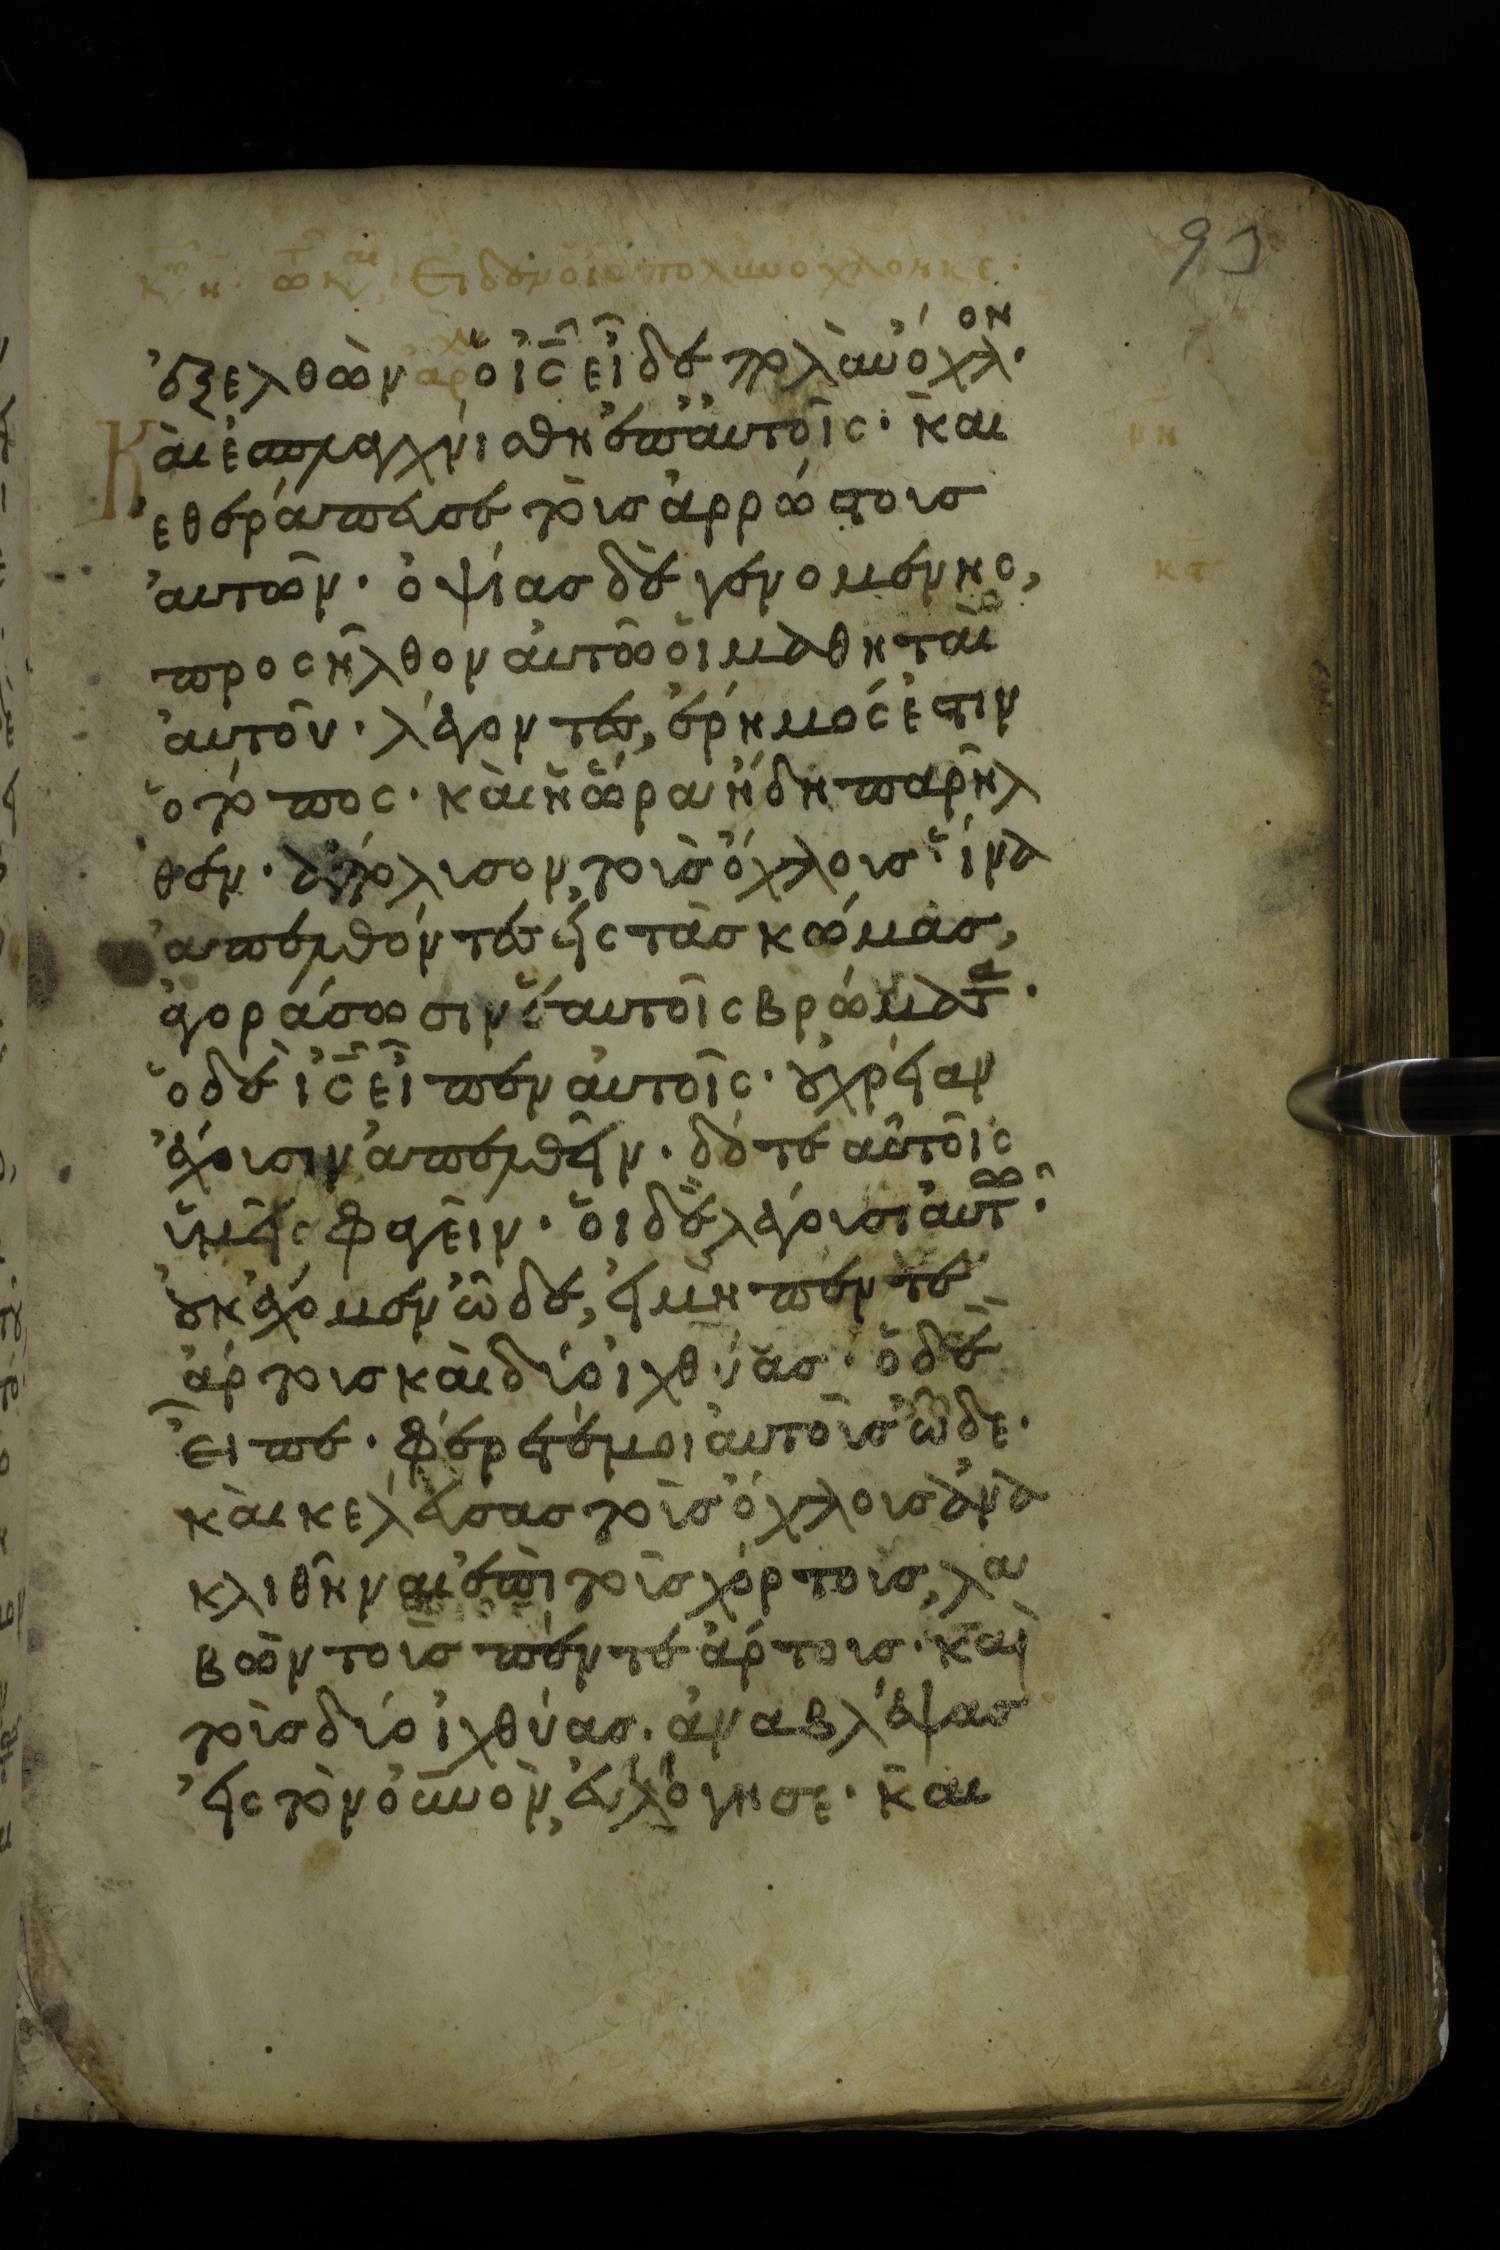 Εἶδεν ὁ ις πολὺν ὄχλον
93
ἐξελθὼν ὁ ι̅ς̅ εἶδε πολὺν ὄχλον·
Καὶ ἐσπλαγχνίσθη ἐπ' αὐτοῖς· καὶ
ἐθεράπευσε τοὺς ἀρρώστους
αὐτῶν· ὀψίας δὲ γενομένης,
προσῆλθον αὐτῶ οἱ μαθηταὶ
αὐτοῦ· λέγοντες, ἔρημός ἐστιν
ὁ τόπος· καὶ ἡ ὥρα ἤδη παρῆλ
θεν· ἀπόλυσον, τοὺς ὄχλους ἵνα
ἀπελθόντες εἰς τὰς κώμας,
ἀγοράσωσιν ἑαυτοῖς βρώματα·
ὁ δὲ ι̅ς̅ εἶπεν αὐτοῖς· οὐ χρείαν
ἔχουσιν ἀπελθεῖν· δότε αὐτοῖς
ὑμεῖς φαγεῖν· οἱ δὲ λέγουσι αὐτῶ·
οὐκ ἔχομεν ὧδε, εἰ μὴ πέντε
ἄρτους καὶ δύο ἰχθύας· ὁ δὲ
εἶπε· φέρετέ μοι αὐτοὺς ὧδε·
καὶ κελεύσας τοὺς ὄχλους ἀνα
κλιθῆναι ἐπὶ τοὺς χόρτους, λα
βὼν τοὺς πέντε ἄρτους· καὶ
τοὺς δύο ἰχθύας· ἀναβλέψας
εἰς τὸν ο̅υ̅νὸν, εὐλόγησε· καὶ